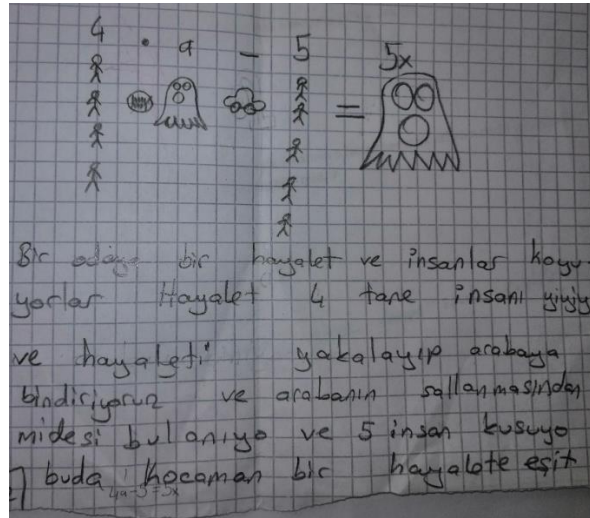 4 . a - 5 = 5x
Bir odaya bir hayalet ve insanlar koyu-
yorlar Hayalet 4 tane insanı yiyiy
ve hayaleti yakalayıp arabaya
bindiriyoruz ve arabanın sallanmasından
midesi bulanıyo ve 5 insan kusuyo
buda kocaman bir hayalete eşit
4a-5=5x